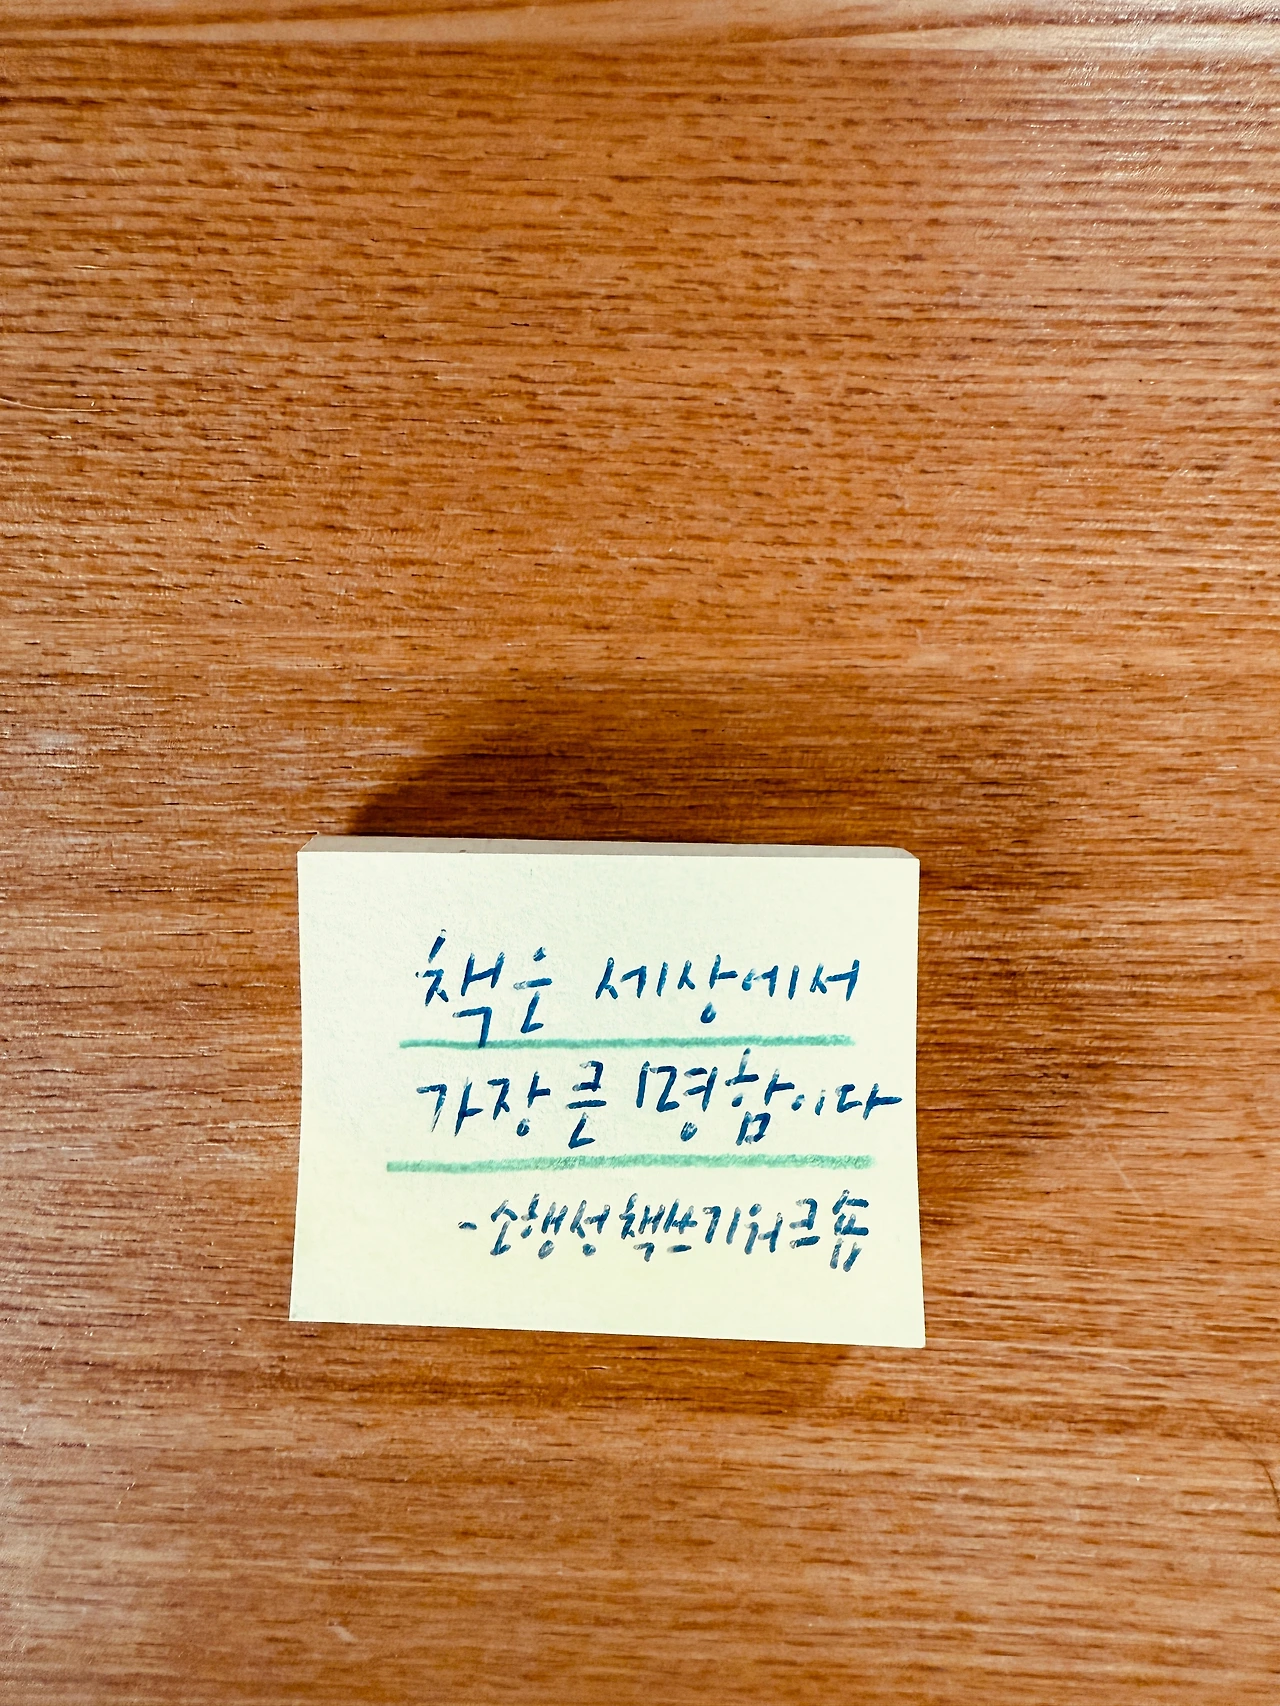 책은 세상에서
가장 큰 명함이다
-소행성 책쓰기 워크숍